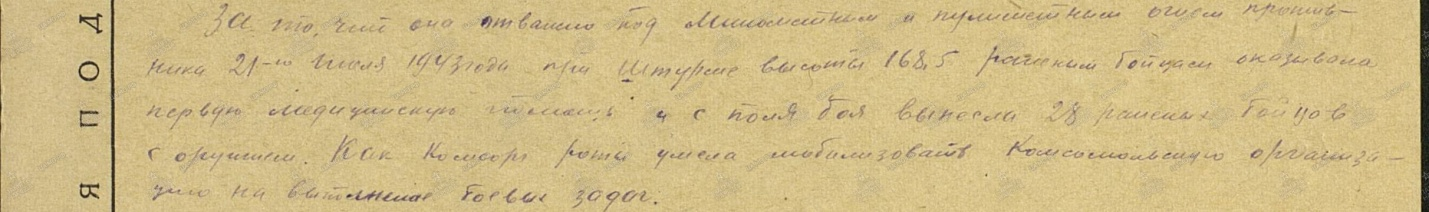 За то, что она отважно под миномётным и пулемётным огнём против-
ника 21-го июля 1943 года при штурме высоты 168,5 раненым бойцам оказывала
первую медицинскую помощь и с поля боя вынесла 28 раненых бойцов
с оружием. Как комсорг роты умела мобилизовать комсомольскую организа-
цию на выполнение боевых задач.
Я П О Д